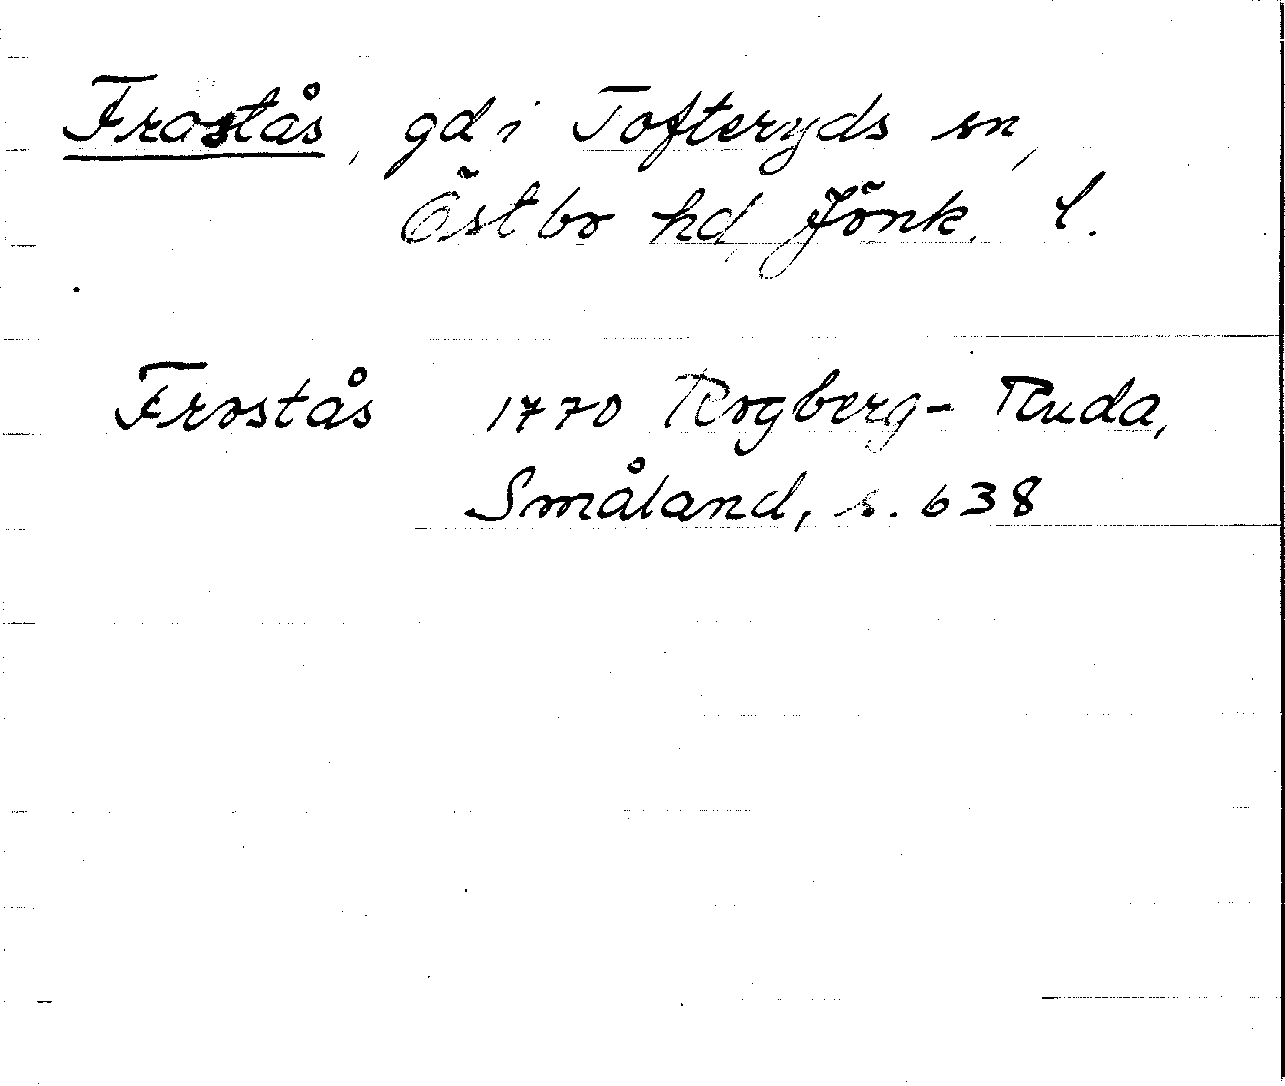 Frostås, gd i Tofteryds sn,
Östbo hd, Jönk. l.
Frostås 1770 Rogberg-Ruda,
Småland, s. 638